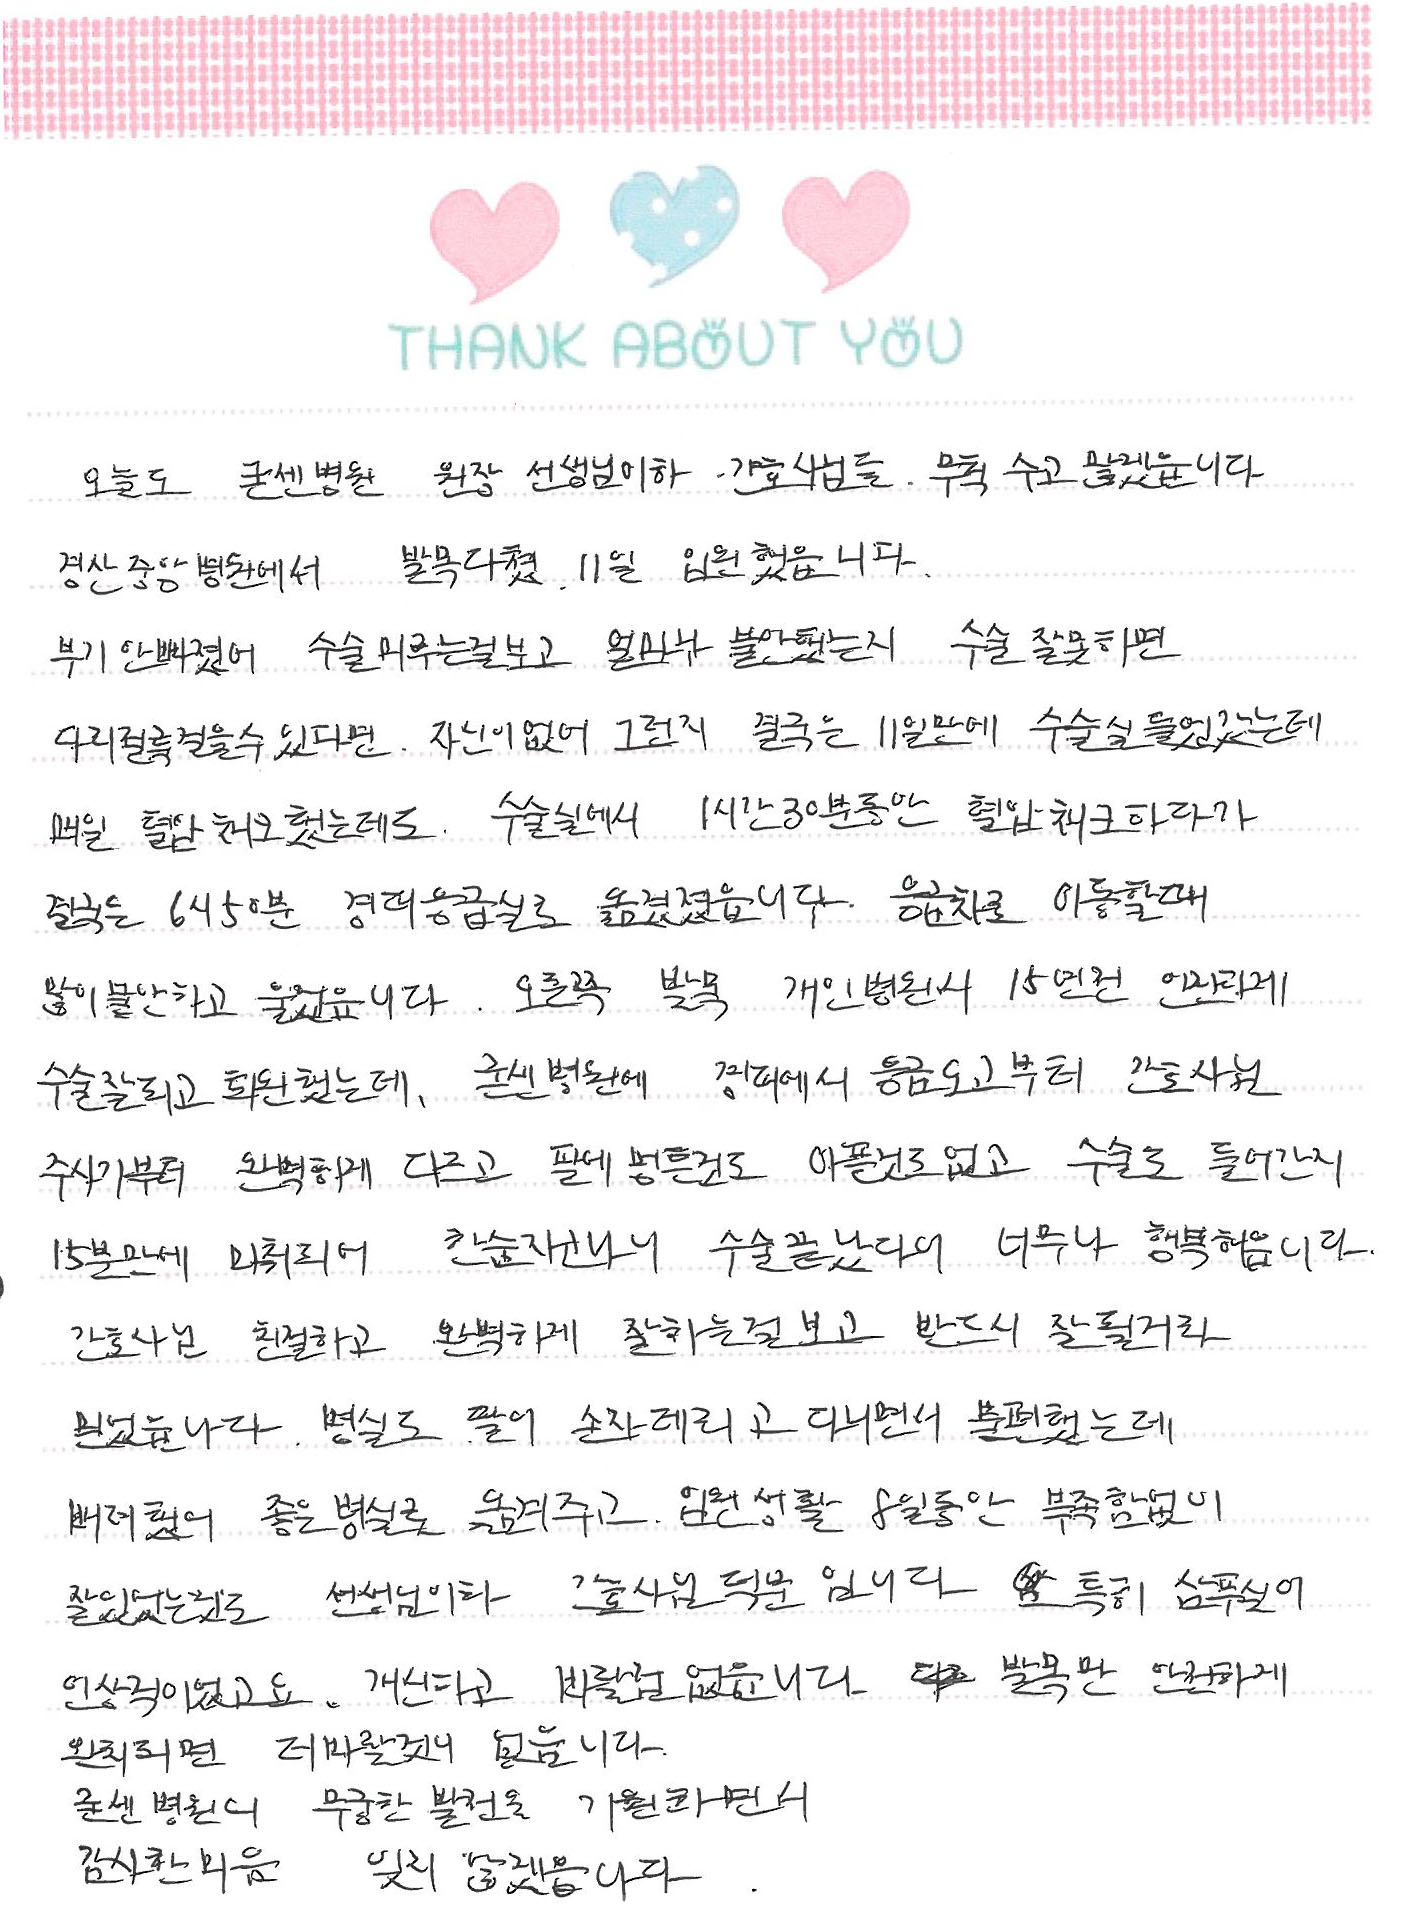 THANK ABOUT YOU
오늘도 굳센병원 원장 선생님이하 간호사님들. 무척 수고 많겠읍니다
경산중앙병원에서 발목다쳤. 11일 입원했읍니다.
부기안빠졌어 수술미루는걸보고 얼마나 불안했는지 수술잘못하면
다리절뚝걸을수있다면. 자신이없어 그런지 결국은 11일만에 수술실들었갔는데
매일 혈압체크했는데도. 수술실에서 1시간30분동안 혈압체크하다가
결국은 6시50분 경대응급실로 옮겨졌읍니다. 응급차로 이동할때
많이불안하고 울었읍니다. 오른쪽 발목 개인병원서 15년전 안전하게
수술잘되고 회원했는데, 굳센병원에 경대에서 응급도고부터 간호사님
주사기부터 완벽하게 다르고 팔에멍든것도 아픈것도없고 수술도 들어간지
15분만에 마취되어 한숨자고나니 수술끝났다니 너무나 행복했읍니다.
간호사님 친절하고 완벽하게 잘하는걸보고 반드시 잘될거라
믿었읍니다. 병실도 딸이 손자데리고 다니면서 불편했는데
배려했어 좋은병실로 옮겨주고. 입원생활 8일동안 부족함없이
잘있었는것도 선생님이하 간호사님덕분입니다 특히 샴푸실이
인상적이었고요. 개선하고 바랄점없읍니다 발목만 안전하게
완치되면 더바랄것이 없읍니다.
굳센병원의 무궁한 발전을 기원하면서
감사한마음 잊지않겠읍니다.